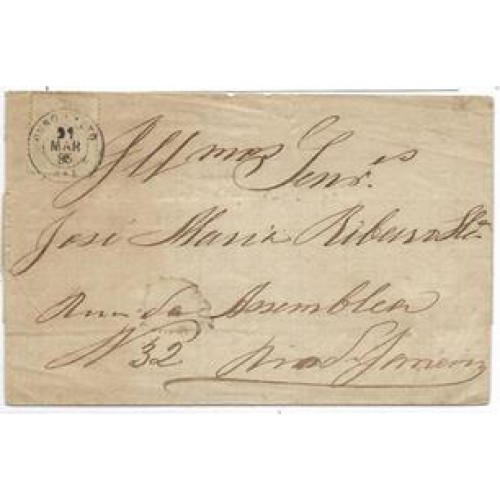 21
MAR
85
Illmos Senr.es
José Maria Ribeiro
Rua da Assemblea
N 32 Rio de Janeiro